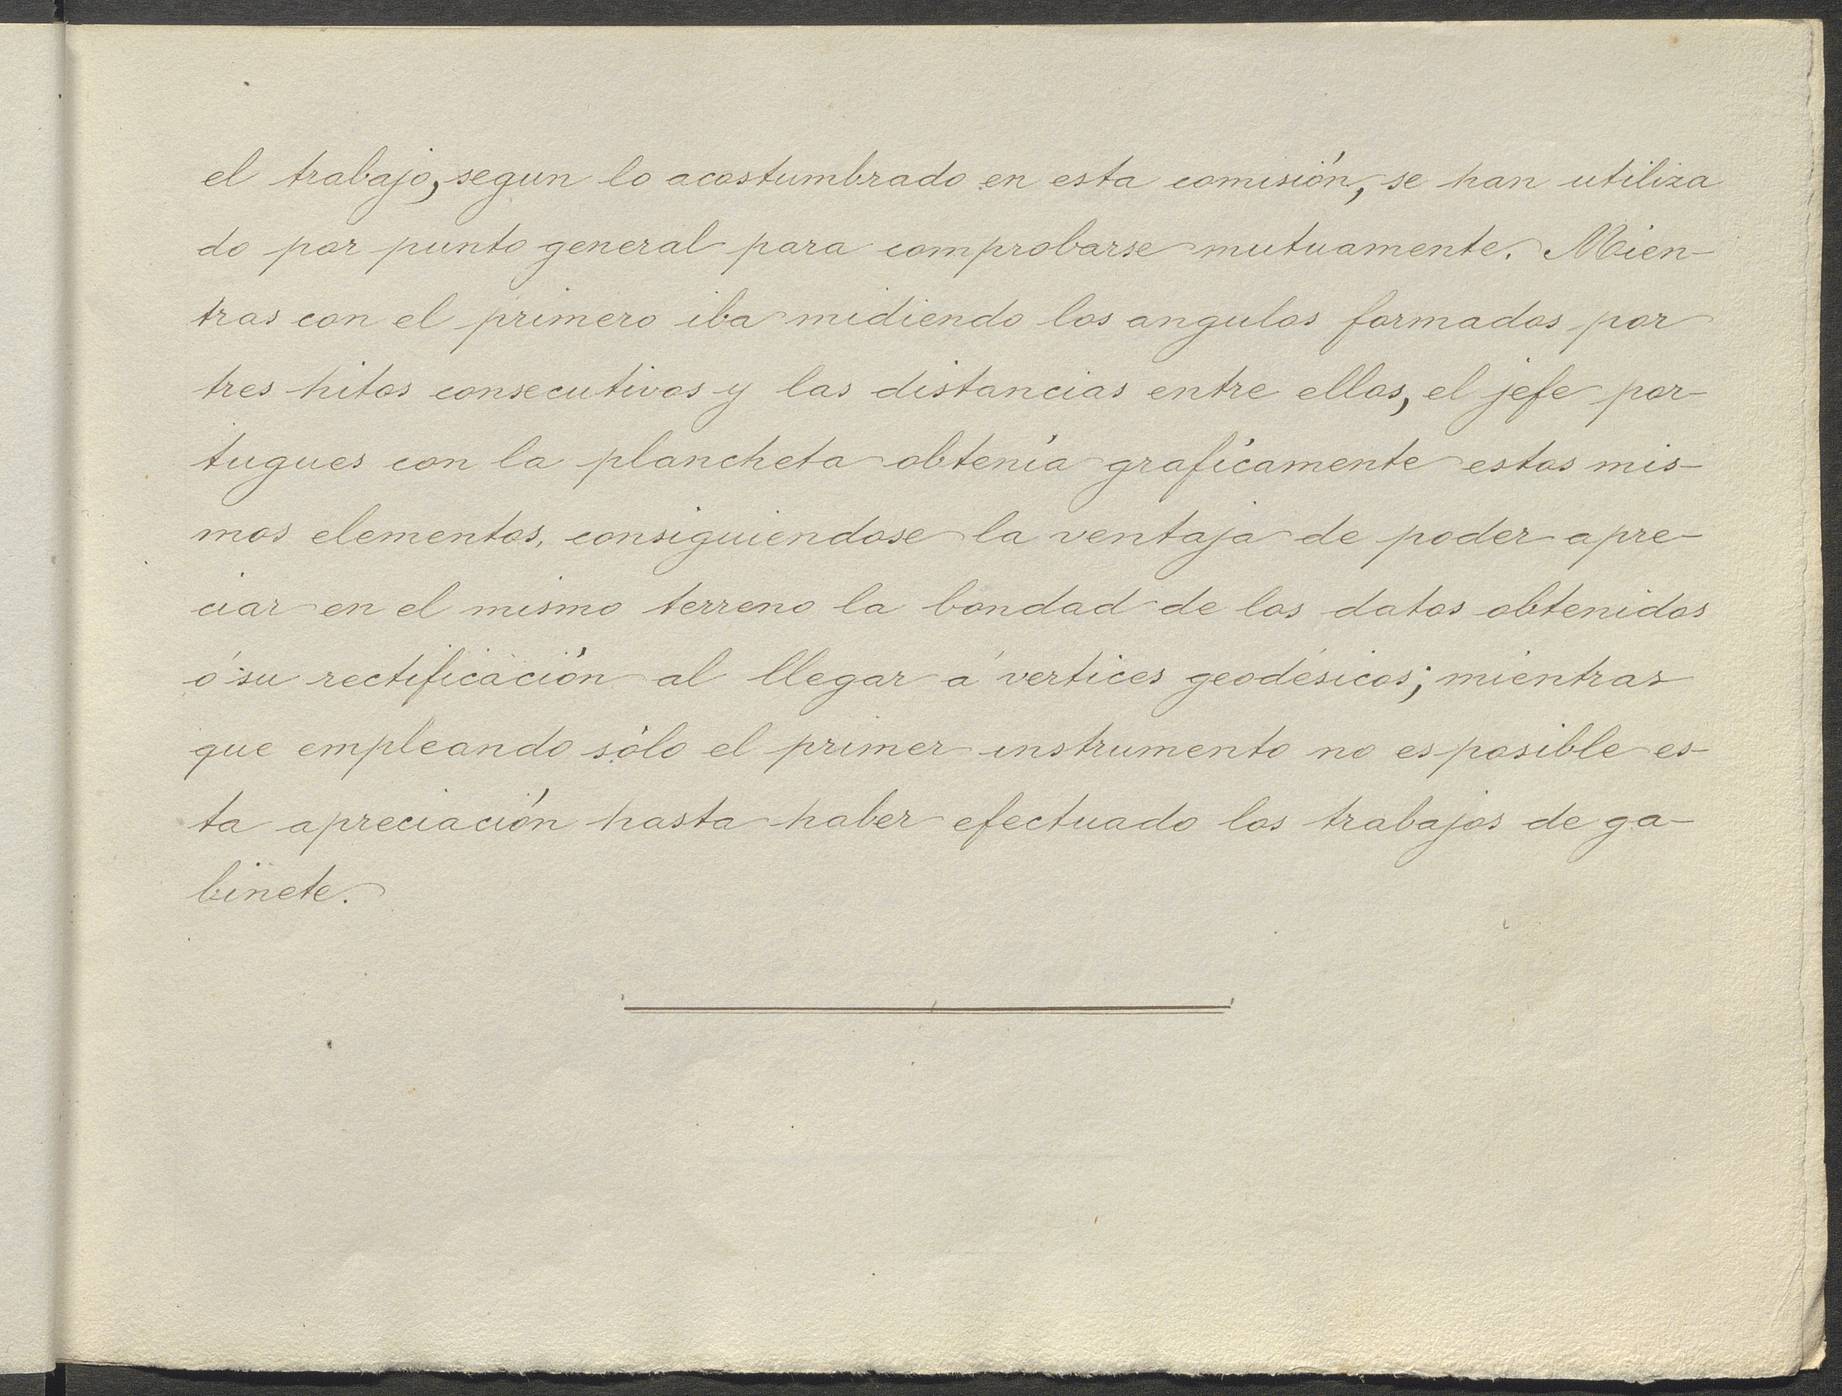 el trabajo, segun lo acostumbrado en esta comisión, se han utiliza
do por punto general para comprobarse mutuamente. Mien-
tras con el primero iba midiendo los angulos formados por
tres hitos consecutivos y las distancias entre ellos, el jefe por-
tugues con la plancheta obtenía graficamente estos mis-
mos elementos, consiguiendose la ventaja de poder apre-
ciar en el mismo terreno la bondad de los datos obtenidos
ó su rectificación al llegar á vertices geodésicos; mientras
que empleando sólo el primer instrumento no es posible es-
ta apreciación hasta haber efectuado los trabajos de ga-
binete.